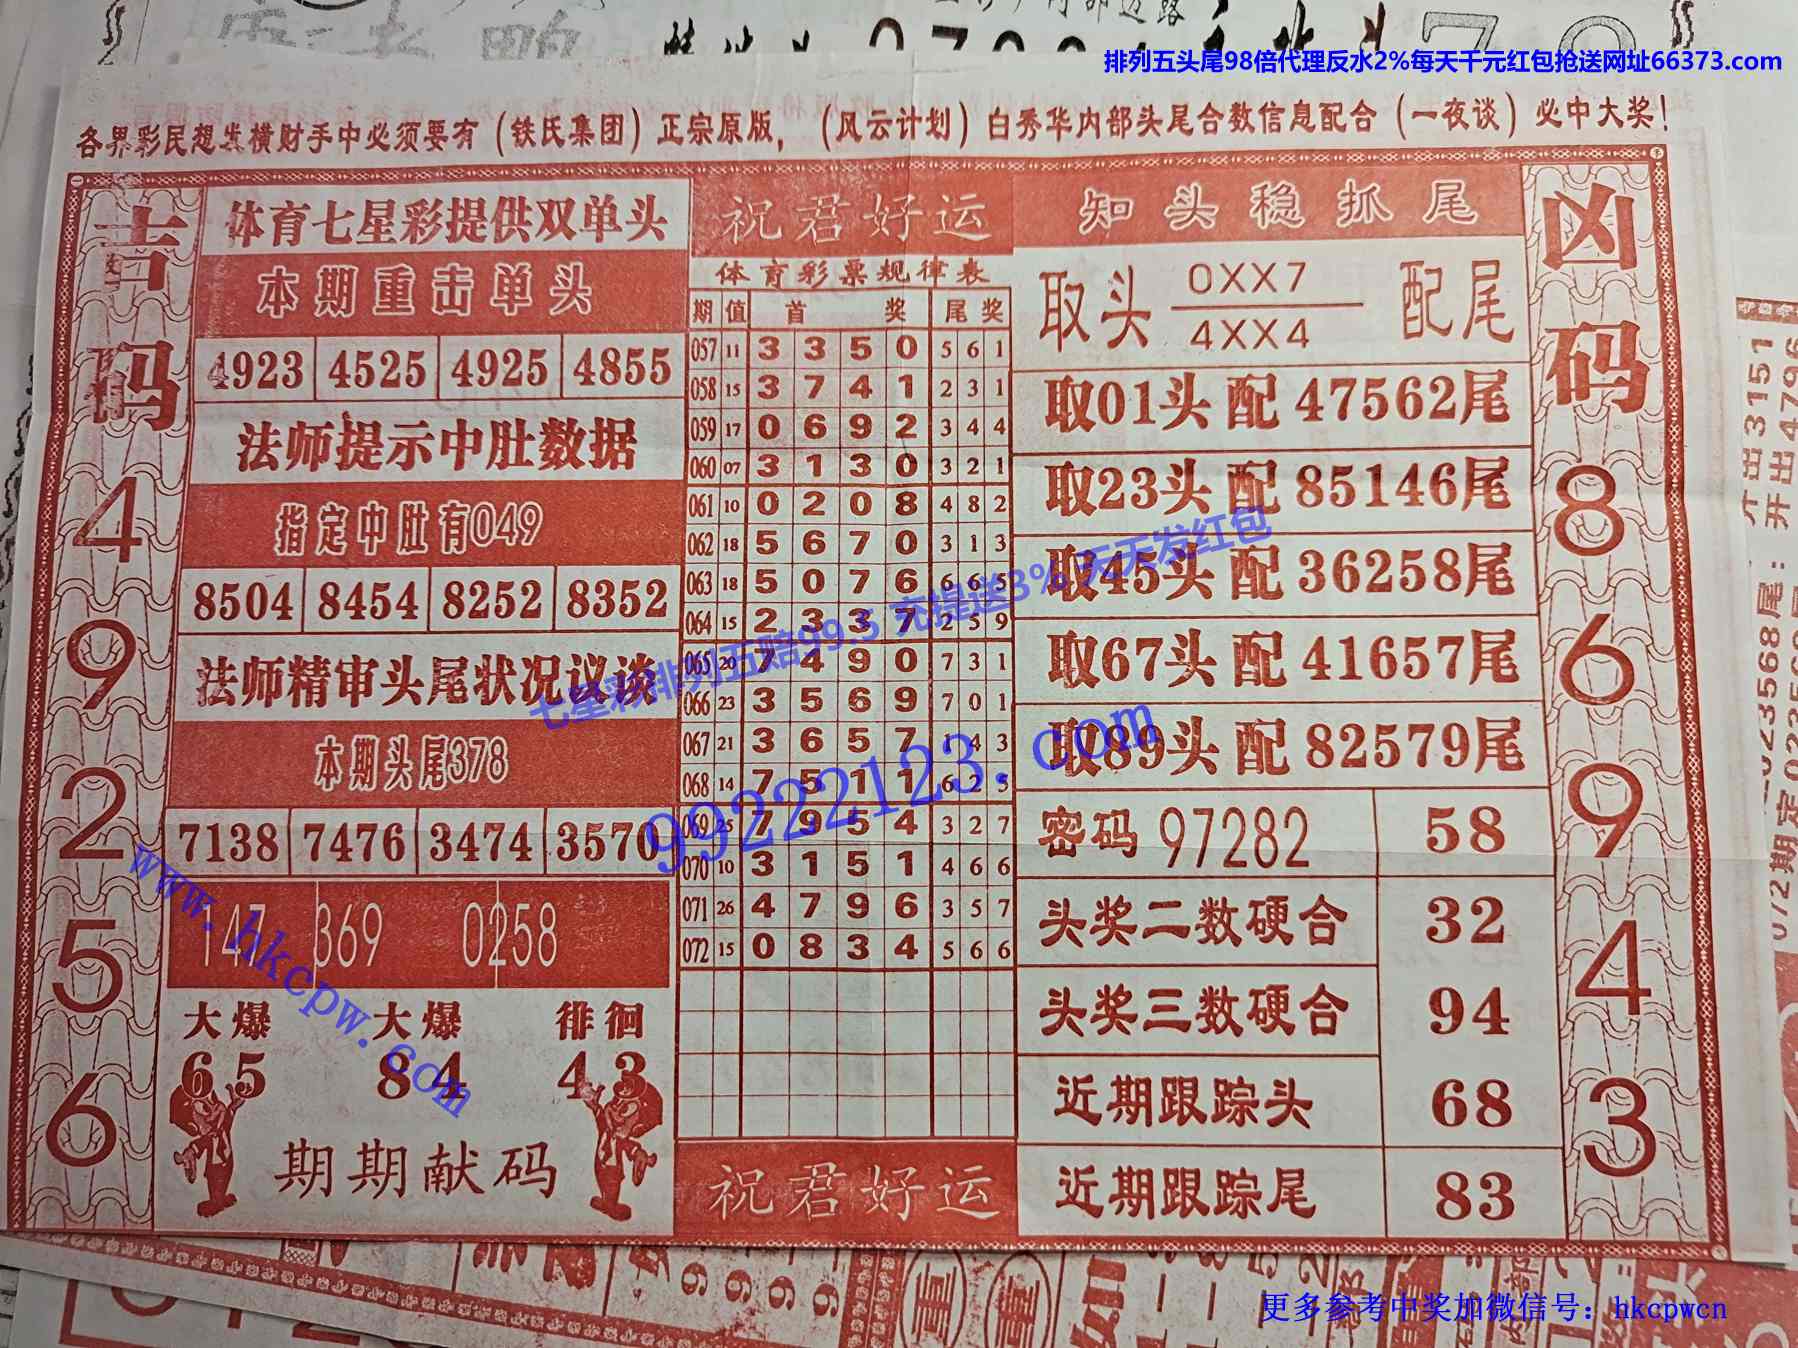 排列五头尾98倍代理反水2%每天千元红包抢送网址66373.com
各界彩民想发横财手中必须要有（铁氏集团）正宗原版，（风云计划）白秀华内部头尾合数信息配合（一夜谈）必中大奖！
吉码
4
9
2
5
6
体育七星彩提供双单头
本期重击单头
4923 4525 4925 4855
法师提示中肚数据
指定中肚有049
8504 8454 8252 8352
法师精审头尾状况议谈
本期头尾378
7138 7476 3474 3570
147 369 0258
大爆 大爆 徘徊
65 84 43
期期献码
祝君好运
体育彩票规律表
期 值 首 奖 尾 奖
057 11 3 3 5 0 5 6 1
058 15 3 7 4 1 2 3 1
059 17 0 6 9 2 3 4 4
060 07 3 1 3 0 3 2 1
061 10 0 2 0 8 4 8 2
062 18 5 6 7 0 3 1 3
063 18 5 0 7 6 6 6 5
064 15 2 3 3 7 2 5 9
065 20 7 4 9 0 7 3 1
066 23 3 5 6 9 7 0 1
067 21 3 6 5 7 1 4 3
068 14 7 5 1 1 6 2 5
069 25 7 9 5 4 3 2 7
070 10 3 1 5 1 4 6 6
071 26 4 7 9 6 3 5 7
072 15 0 8 3 4 5 6 6
祝君好运
知头稳抓尾
取头 0XX7 配尾
4XX4
取01头 配 47562尾
取23头 配 85146尾
取45头 配 36258尾
取67头 配 41657尾
取89头 配 82579尾
密码 97282 58
头奖二数硬合 32
头奖三数硬合 94
近期跟踪头 68
近期跟踪尾 83
凶码
8
6
9
4
3
七星彩排列五赔99.5 充提送3% 天天发红包
99222123.com
www.hkcpw.com
更多参考中奖加微信号：hkcpwcn